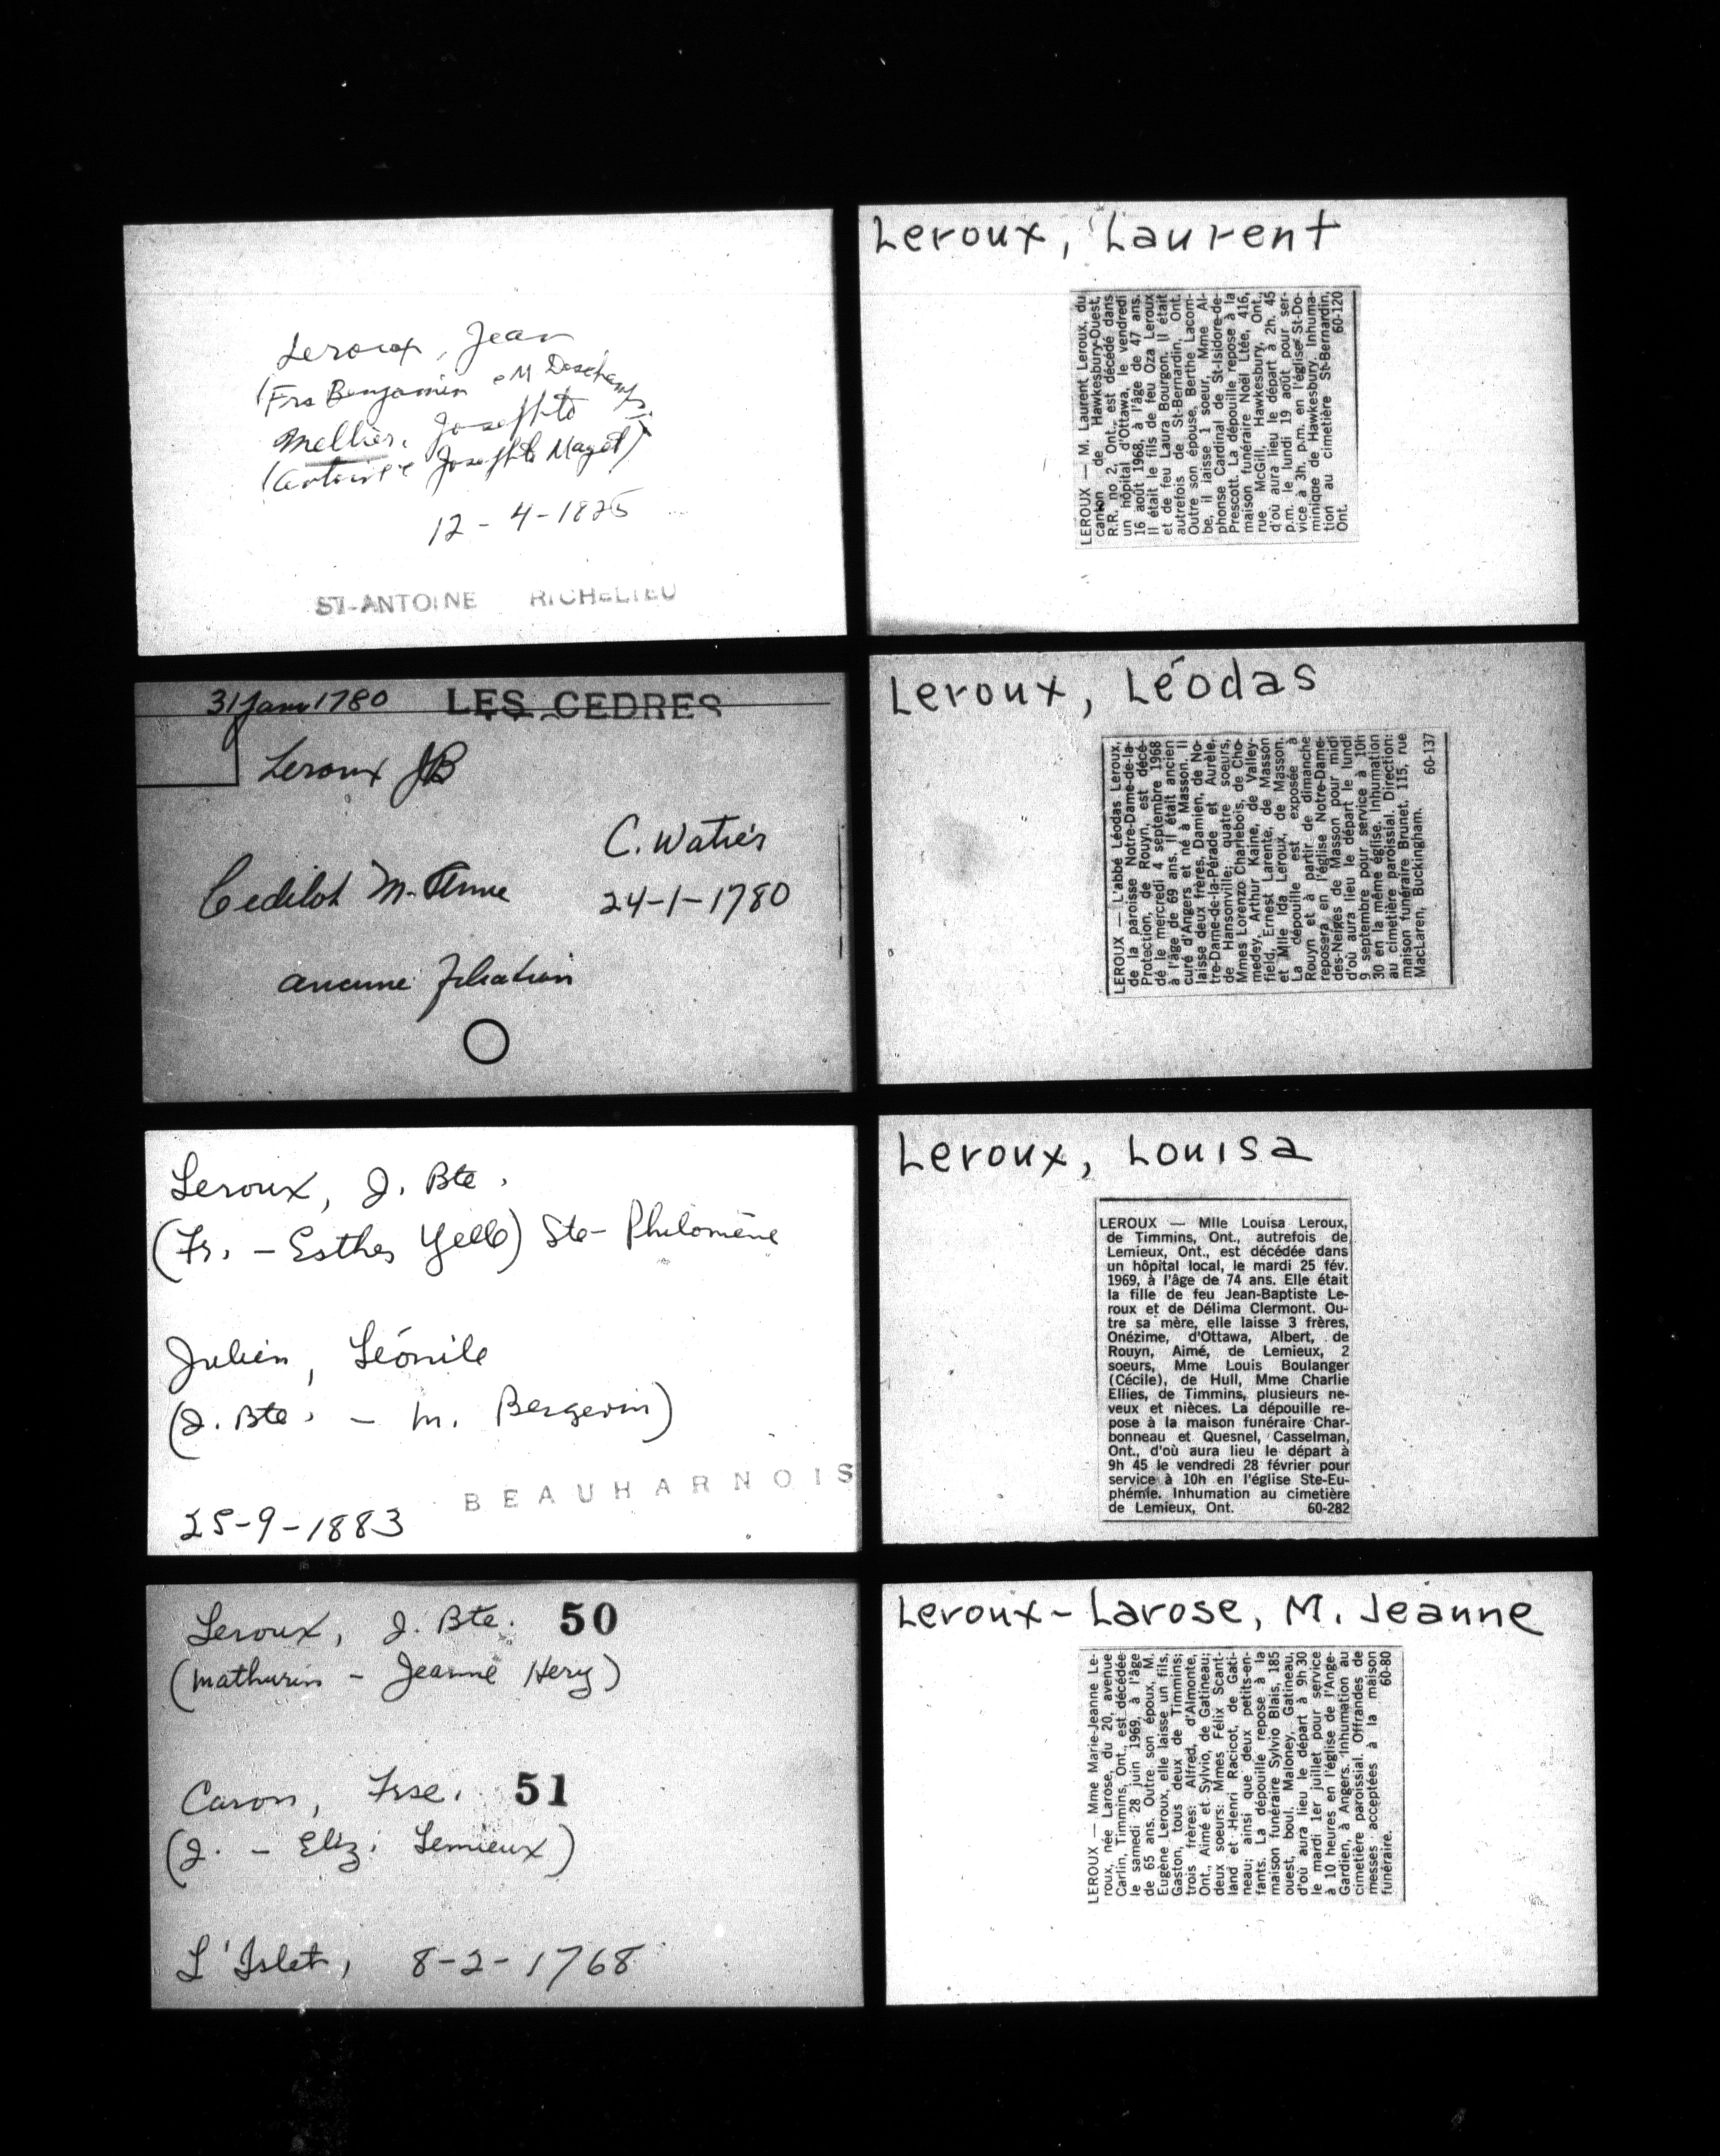 Leroux, Jean
(Frs Benjamin e M Deschamps)
Mellier, Josephte
(Antoine e Josephte Maget)
12-4-1825
ST-ANTOINE RICHELIEU
31 Janv 1780 LES CEDRES
Leroux JB
C. Watier
Cedilot M-Anne
24-1-1780
aucune filiation
Leroux, J. Bte.
(Fr. - Esther Yelle) Ste-Philomène
Julien, Léonile
(J. Bte. - M. Bergevin)
BEAUHARNOIS
25-9-1883
Leroux, J. Bte. 50
(Mathurin - Jeanne Hery)
Caron, Frse. 51
(J. - Eliz. Lemieux)
L'Islet, 8-2-1768
Leroux, Laurent
LEROUX — M. Laurent Leroux, du
canton de Hawkesbury-Ouest,
R.R. no 2, Ont., est décédé dans
un hôpital d'Ottawa, le vendredi
16 août 1968, à l'âge de 47 ans.
Il était le fils de feu Oza Leroux
et de feu Laura Bourgon. Il était
autrefois de St-Bernardin, Ont.
Outre son épouse, Berthe Lacom-
be, il laisse 1 soeur, Mme Al-
phonse Cardinal de St-Isidore-de-
Prescott. La dépouille repose à la
maison funéraire Noël Ltée, 416,
rue McGill, Hawkesbury, Ont.,
d'où aura lieu le départ à 2h. 45
p.m. le lundi 19 août pour ser-
vice à 3h. p.m. en l'église St-Do-
minique de Hawkesbury. Inhuma-
tion au cimetière St-Bernardin,
Ont. 60-120
Leroux, Léodas
LEROUX — L'abbé Léodas Leroux,
de la paroisse Notre-Dame-de-la-
Protection, de Rouyn, est décé-
dé le mercredi 4 septembre 1968
à l'âge de 69 ans. Il était ancien
curé d'Angers et né à Masson. Il
laisse deux frères, Damien, de No-
tre-Dame-de-la-Pérade et Aurèle,
de Hansonville; quatre soeurs,
Mmes Lorenzo Charlebois, de Cho-
medey, Arthur Kaine, de Valley-
field, Ernest Larente, de Masson
et Mlle Ida Leroux, de Masson.
La dépouille est exposée à
Rouyn et à partir de dimanche
reposera en l'église Notre-Dame-
des-Neiges de Masson pour midi
d'où aura lieu le départ le lundi
9 septembre pour service à 10h
30 en la même église. Inhumation
au cimetière paroissial. Direction:
maison funéraire Brunet, 115, rue
MacLaren, Buckingham. 60-137
Leroux, Louisa
LEROUX — Mlle Louisa Leroux,
de Timmins, Ont., autrefois de
Lemieux, Ont., est décédée dans
un hôpital local, le mardi 25 fév.
1969, à l'âge de 74 ans. Elle était
la fille de feu Jean-Baptiste Le-
roux et de Délima Clermont. Ou-
tre sa mère, elle laisse 3 frères,
Onézime, d'Ottawa, Albert, de
Rouyn, Aimé, de Lemieux, 2
soeurs, Mme Louis Boulanger
(Cécile), de Hull, Mme Charlie
Ellies, de Timmins, plusieurs ne-
veux et nièces. La dépouille re-
pose à la maison funéraire Char-
bonneau et Quesnel, Casselman,
Ont., d'où aura lieu le départ à
9h 45 le vendredi 28 février pour
service à 10h en l'église Ste-Eu-
phémie. Inhumation au cimetière
de Lemieux, Ont. 60-282
Leroux-Larose, M. Jeanne
LEROUX — Mme Marie-Jeanne Le-
roux, née Larose, du 20, avenue
Carlin, Timmins, Ont., est décédée
le samedi 28 juin 1969, à l'âge
de 65 ans. Outre son époux, M.
Eugène Leroux, elle laisse un fils,
Gaston, tous deux de Timmins;
trois frères: Alfred, d'Almonte,
Ont., Aimé et Sylvio, de Gatineau;
deux soeurs: Mmes Félix Scant-
land et Henri Racicot, de Gati-
neau; ainsi que deux petits-en-
fants. La dépouille repose à la
maison funéraire Sylvio Blais, 185
ouest, boul. Maloney, Gatineau,
d'où aura lieu le départ à 9h 30
le mardi 1er juillet pour service
à 10 heures en l'église de l'Ange-
Gardien, à Angers. Inhumation au
cimetière paroissial. Offrandes de
messes acceptées à la maison
funéraire. 60-80